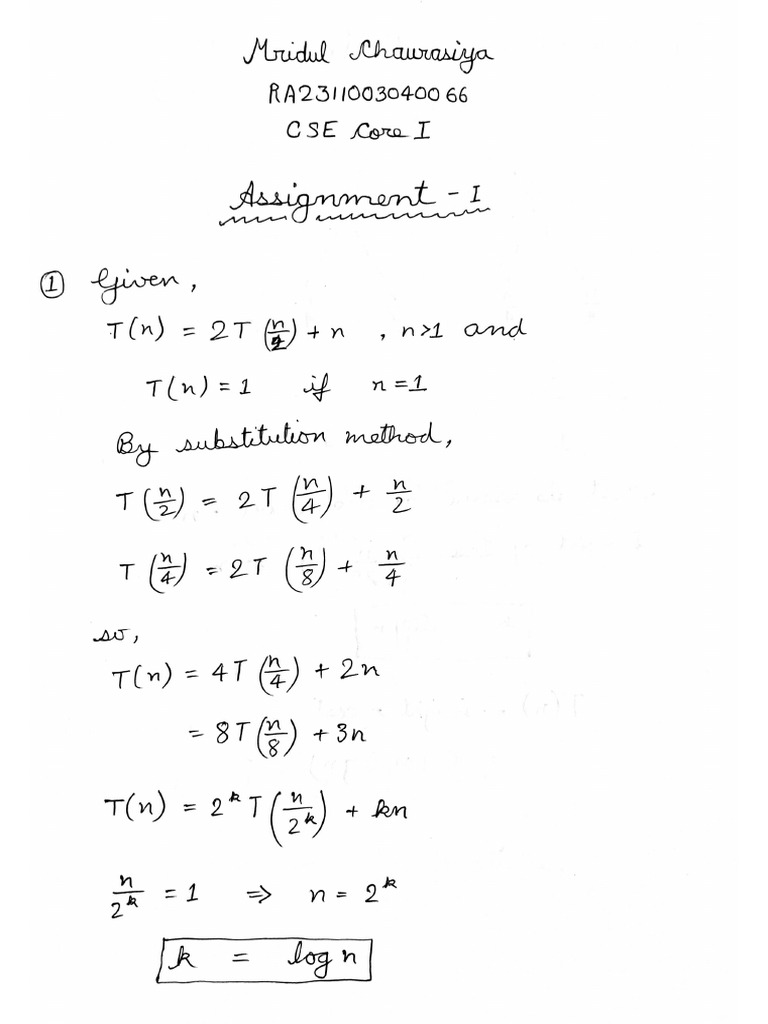 Mridul Chaurasiya
RA2311003040066
CSE Core I
Assignment - I
① Given,
T(n) = 2T(n/2) + n , n>1 and
T(n) = 1 if n = 1
By substitution method,
T(n/2) = 2T(n/4) + n/2
T(n/4) = 2T(n/8) + n/4
so,
T(n) = 4T(n/4) + 2n
= 8T(n/8) + 3n
T(n) = 2^k T(n/2^k) + kn
n/2^k = 1 ⇒ n = 2^k
k = log n